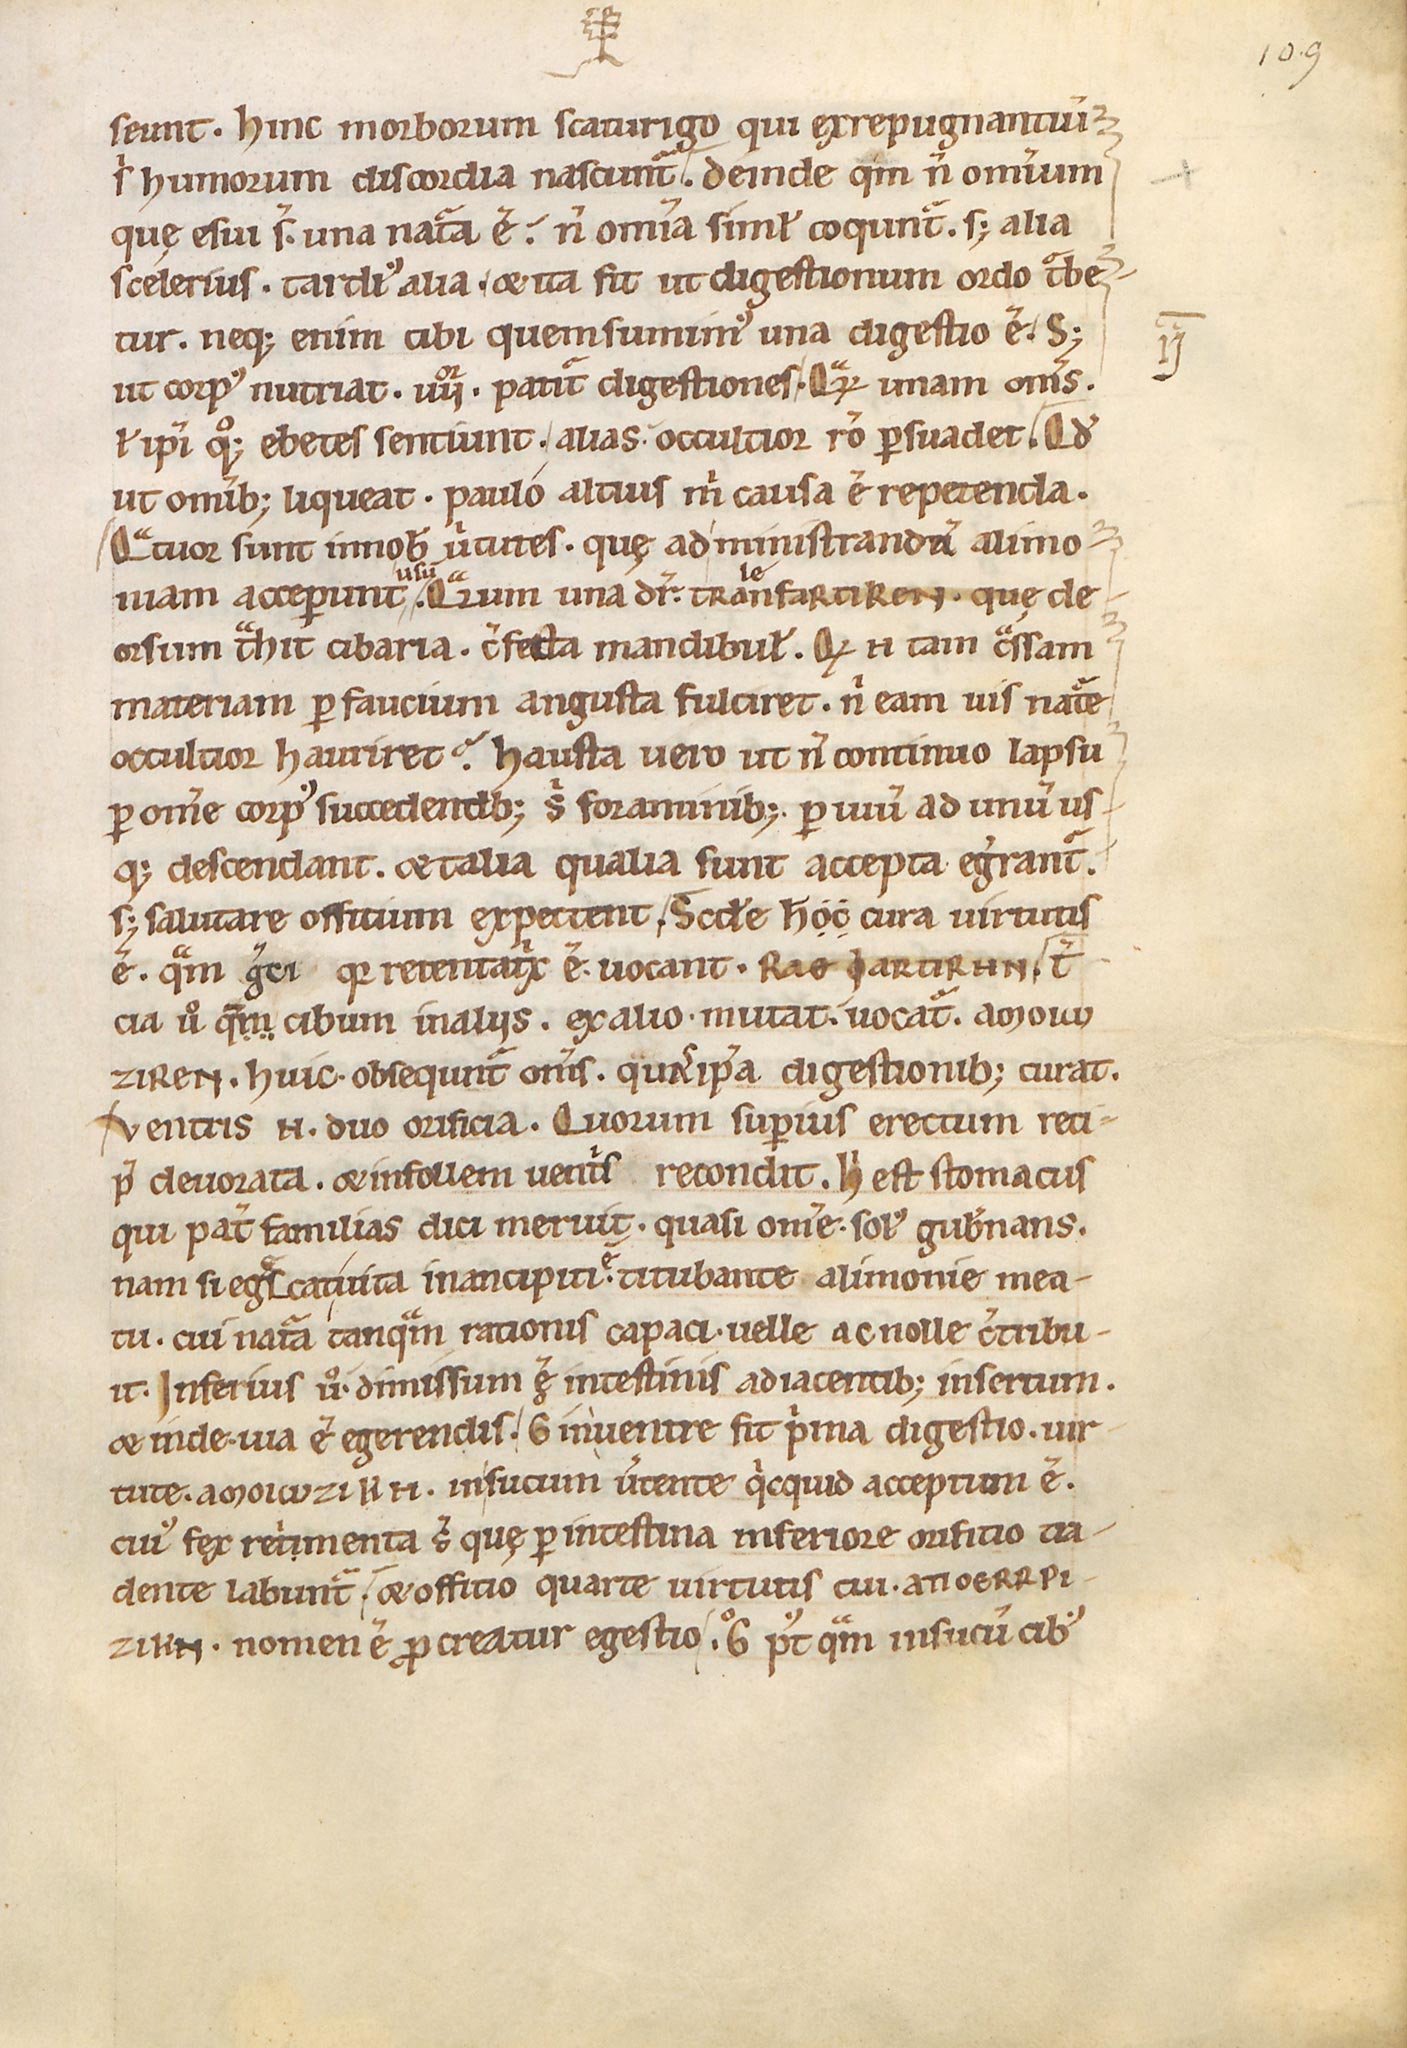 109
seunt. hinc morborum scaturigo qui exrepugnantuū
ł humorum discordia nascunt̃. deinde qm̃ ñ omĩum
quę esui s̃. una nat̃a ẽ. ñ omĩa simł coqunt̃. s; alia
scelerius. tardi᾽ alia. & ita fit ut digestionum ordo t̃be
tur. neq; enim cibi quem sumim᾽ una digestio ẽ. S;
ut corp᾽ nutriat. uıȷ. patit̃ digestiones. Qr̃ unam om̃s.
ł ip̃i q°; ebetes sentiunt. alias occultior rõ p̱suadet. Qd᾽
ut omĩb; liqueat. paulo altius m̃ causa ẽ repetenda.
Qᵃtuor sunt innob̃ ũtutes. quę administrandã alimo
niam acceperunt usū. Qᵃrum una dr̃. tranfartiken. quę de
le
orsum t̃hit cibaria. c̃fecta mandibuł. Q N tam c̃ssam
materiam p̱ faucium angusta fulciret. ñ eam uis nat̃e
occultior hauriret. hausta vero ut ñ continuo lapsu
p̱ om̃e corp᾽ succedentib; s̃ foraminib;. p̱ uiū ad unū us
q; descendant. & talia qualia sunt accepta eg̃rant̃.
s; salutare offitium expectent. Scd̃e học̣ cura virtutis
ẽ. qᵃm g̃ci qr retentat̃x ẽ uocant. RAΘ KARTIRHN. t̃
cia u° qᵃm cibum inalijs. ex alio mutat. uocat̃. amoiω
ZIREN. huic. obsequnt̃ om̃s. qur̃ ip̃a digestionib; curat.
Ventris N. duo orificia. Quorum sup̱ius erectum reti
p̃ devorata. & infollem ventⁱs recondit. h̃ est stomacus
qui pat̃ familias dici meruit. quasi om̃e. sol᾽ gub̃nans.
nam si eg̃ cat̃ uita inancipiti ẽ. titubante alimonie mea
tu. cui nat̃a tanqᵃm rationis capaci. uelle ac nolle c̃tribu
it. Inferius u° dimissum ę intestinis adiacentib; insertum.
& inde. uia ẽ egerendis. G inventre fit pⁱma digestio. uir
tute. amoiωziKN. insucum ũtente qⁱcquid acceptum ẽ.
cui᾽ fęx ret̃menta s̃ quę p̱ intestina inferiore orifitio tra
dente labunt̃. & offitio quarte virtutis cui. AΠOERRPI
ZIKN. nomen ẽ p̱creatur egestio. G° p᾽t qᵃm insucū cib᾽
ıȷ